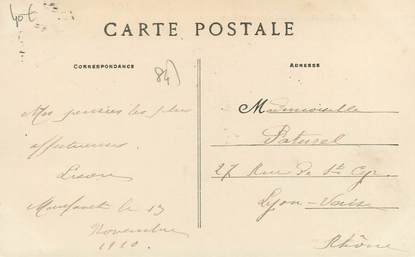 40 €
CARTE POSTALE
CORRESPONDANCE
84)
ADRESSE
Mes pensées les plus
affectueuses.
Lison
le 13
Novembre
1910.
Mademoiselle
Paturel
27 Rue de St Cyr
Lyon-Vaise
Rhône